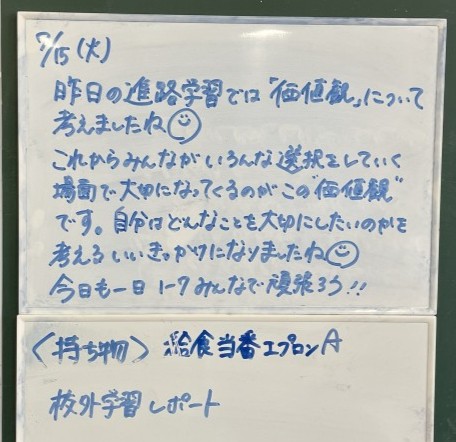 7/15(火)
昨日の進路学習では"価値観"について
考えましたね
これからみんながいろんな選択をしていく
場面で大切になってくるのがこの"価値観"
です。自分はどんなことを大切にしたいのかを
考えるいいきっかけになりましたね
今日も一日1-7みんなで頑張ろう!!
〈持ち物〉 給食当番エプロンA
校外学習レポート